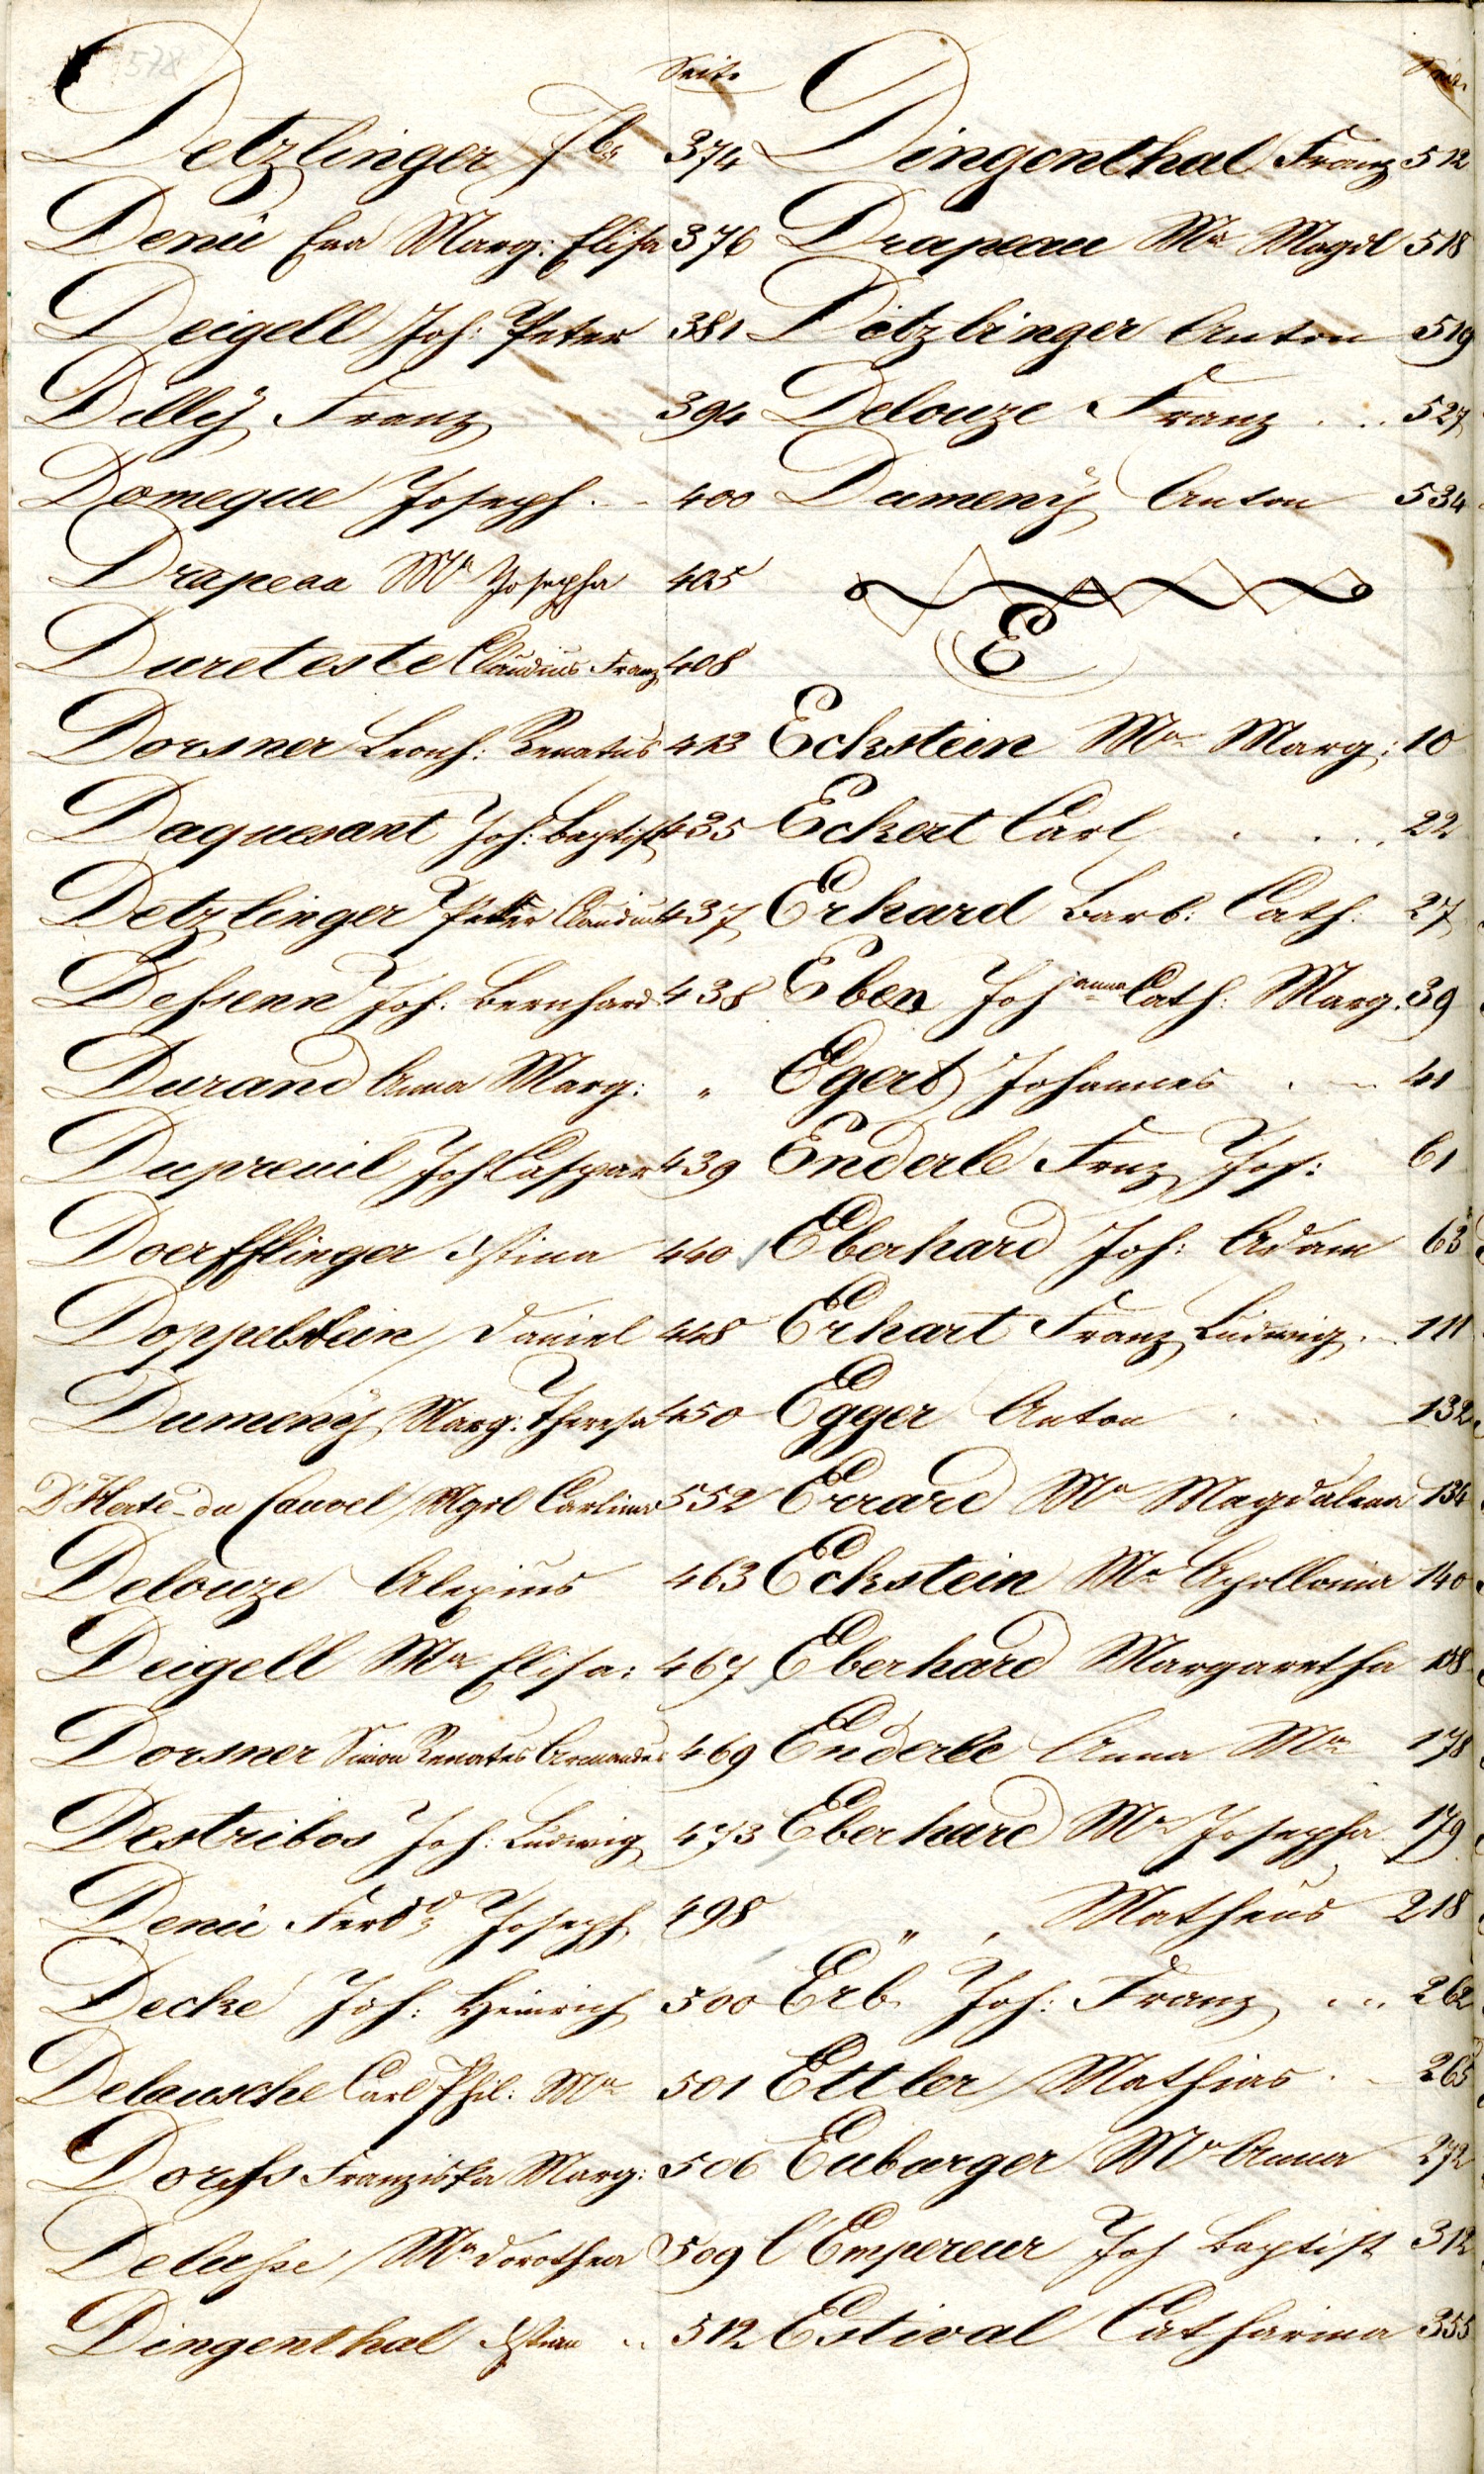 578
Seite
Detzlinger Jbs 374
Denü Eva Marg: Elisa 376
Deigell Joh: Peter 381
Dillÿ Franz 394
Domeque Joseph. 400
Drapeau Ma Josepha 405
Dureteste Claudius Franz 408
Dorsner Leonh: Renatus 413
Daquesant Joh: Baptist 435
Detzlinger Peter Claudius 437
Dehsenn Joh: Bernhard 438
Durand Anna Marg: "
Dupreuil Joh Caspar 439
Doerfflinger Xstina 440
Doppelstein Daniel 448
Dumenÿ Marg: Theresa 450
D'Herte-du Cauvel Mgdl Carlina 552
Delouze Alexius 463
Deigell Ma Elisa: 467
Dorsner Simon Renatus Armandus 469
Destribos Joh: Ludwig 473
Denü Ferdd Joseph 498
Decke Joh: Heinrich 500
Delausche Carl Phil: Ma 501
Dorhs Franziska Marg: 506
Deluhse Ma Dorothea 509
Dingenthal Xstian .. 512
Seite
Dingenthal Franz 512
Drapeau Ma Magdl 518
Ditzlinger Anton 519
Delouze Franz ... 527
Dumenÿ Anton 534
E
Eckstein Ma Marg: 10
Eckert Carl .... 22
Erhard Barb: Cath: 27
Eben Johanna Cath: Marg. 39
Egert Johannes . 41
Enderle Frnz Jos: 61
Eberhard Joh: Adam 63
Erhart Franz Ludwig .. 111
Egger Anton .. 132
Errard Ma Magdalena 134
Eckstein Ma Apollonia 140
Eberhard Margaretha 158
Enderle Anna Ma 178
Eberhard Ma Josepha 179
" , Matheus 218
Erb Joh: Franz ... 262
Ettler Mathias .. 265
Euborger Ma Anna 272
l'Empereur Joh Baptist 312
Estival Catharina 355